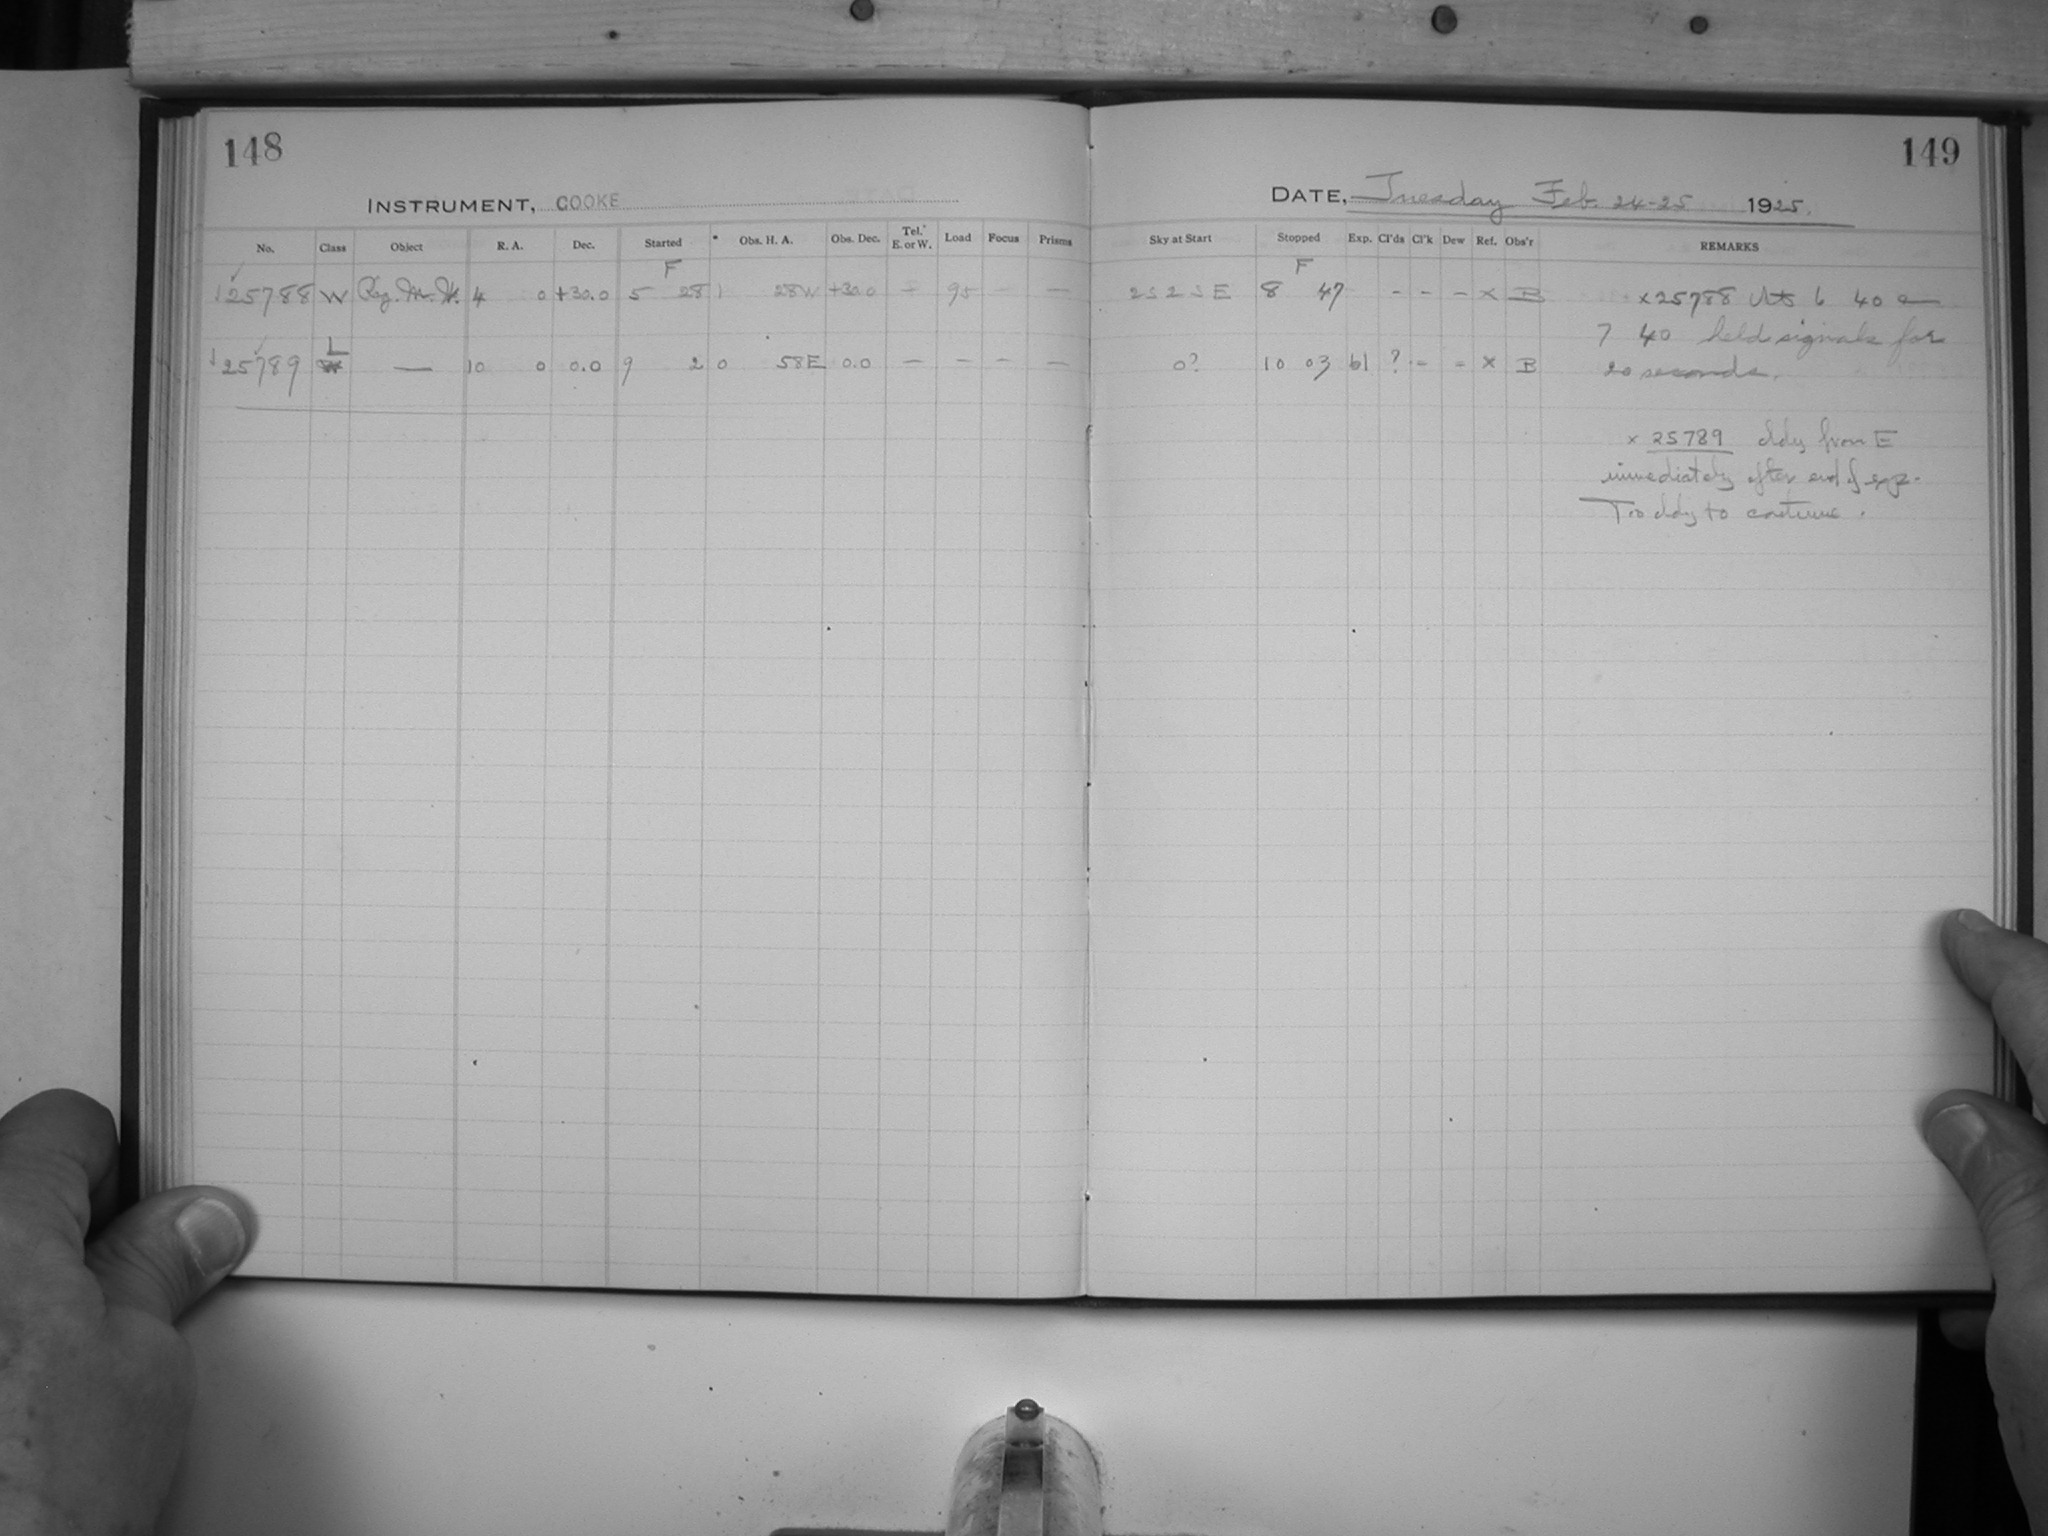 148
149
INSTRUMENT, COOKE
DATE, Tuesday Feb. 24-25 1925.
No. Class Object R. A. Dec. Started Obs. H. A. Obs. Dec. Tel. E. or W. Load Focus Prisms Sky at Start Stopped Exp. Cl'ds Cl'k Dew Ref. Obs'r REMARKS
F F
25788 W Reg. M. W. 4 0 +30.0 5 28 1 28W +30.0 — 95 — — 2S2SE 8 47 - - - x B x25788 6 40
7 40 held signals for
L
25789 — 10 0 0.0 9 2 0 58E 0.0 — — — — 0? 10 03 61 ? - - x B 20 seconds.
x 25789 cldy from E
immediately after end of exp.
Too cldy to continue.